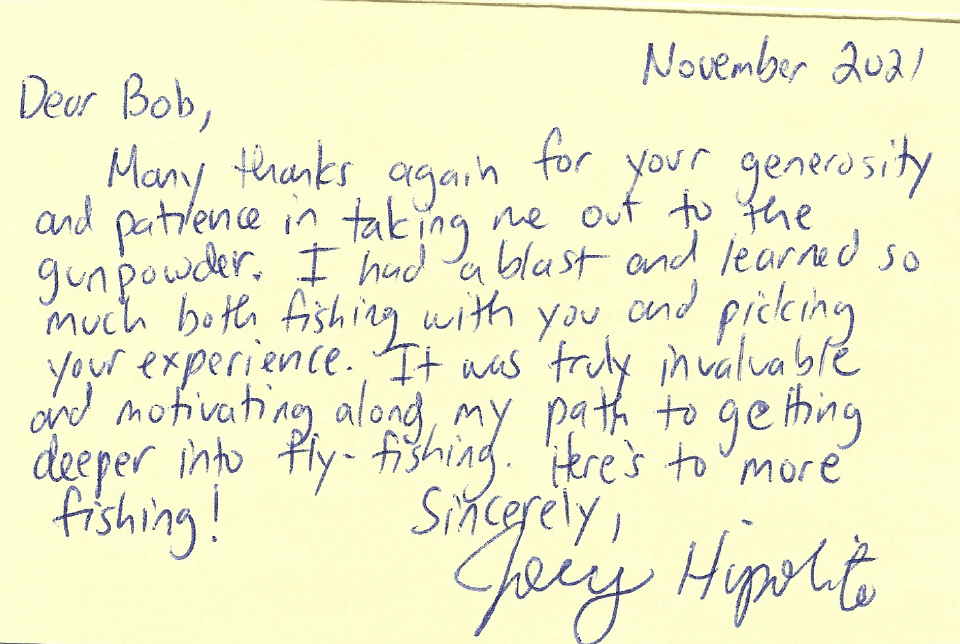 November 2021
Dear Bob,
Many thanks again for your generosity
and patience in taking me out to the
gunpowder. I had a blast and learned so
much both fishing with you and picking
your experience. It was truly invaluable
and motivating along my path to getting
deeper into fly-fishing. Here's to more
fishing!
Sincerely,
Joey Hipolito